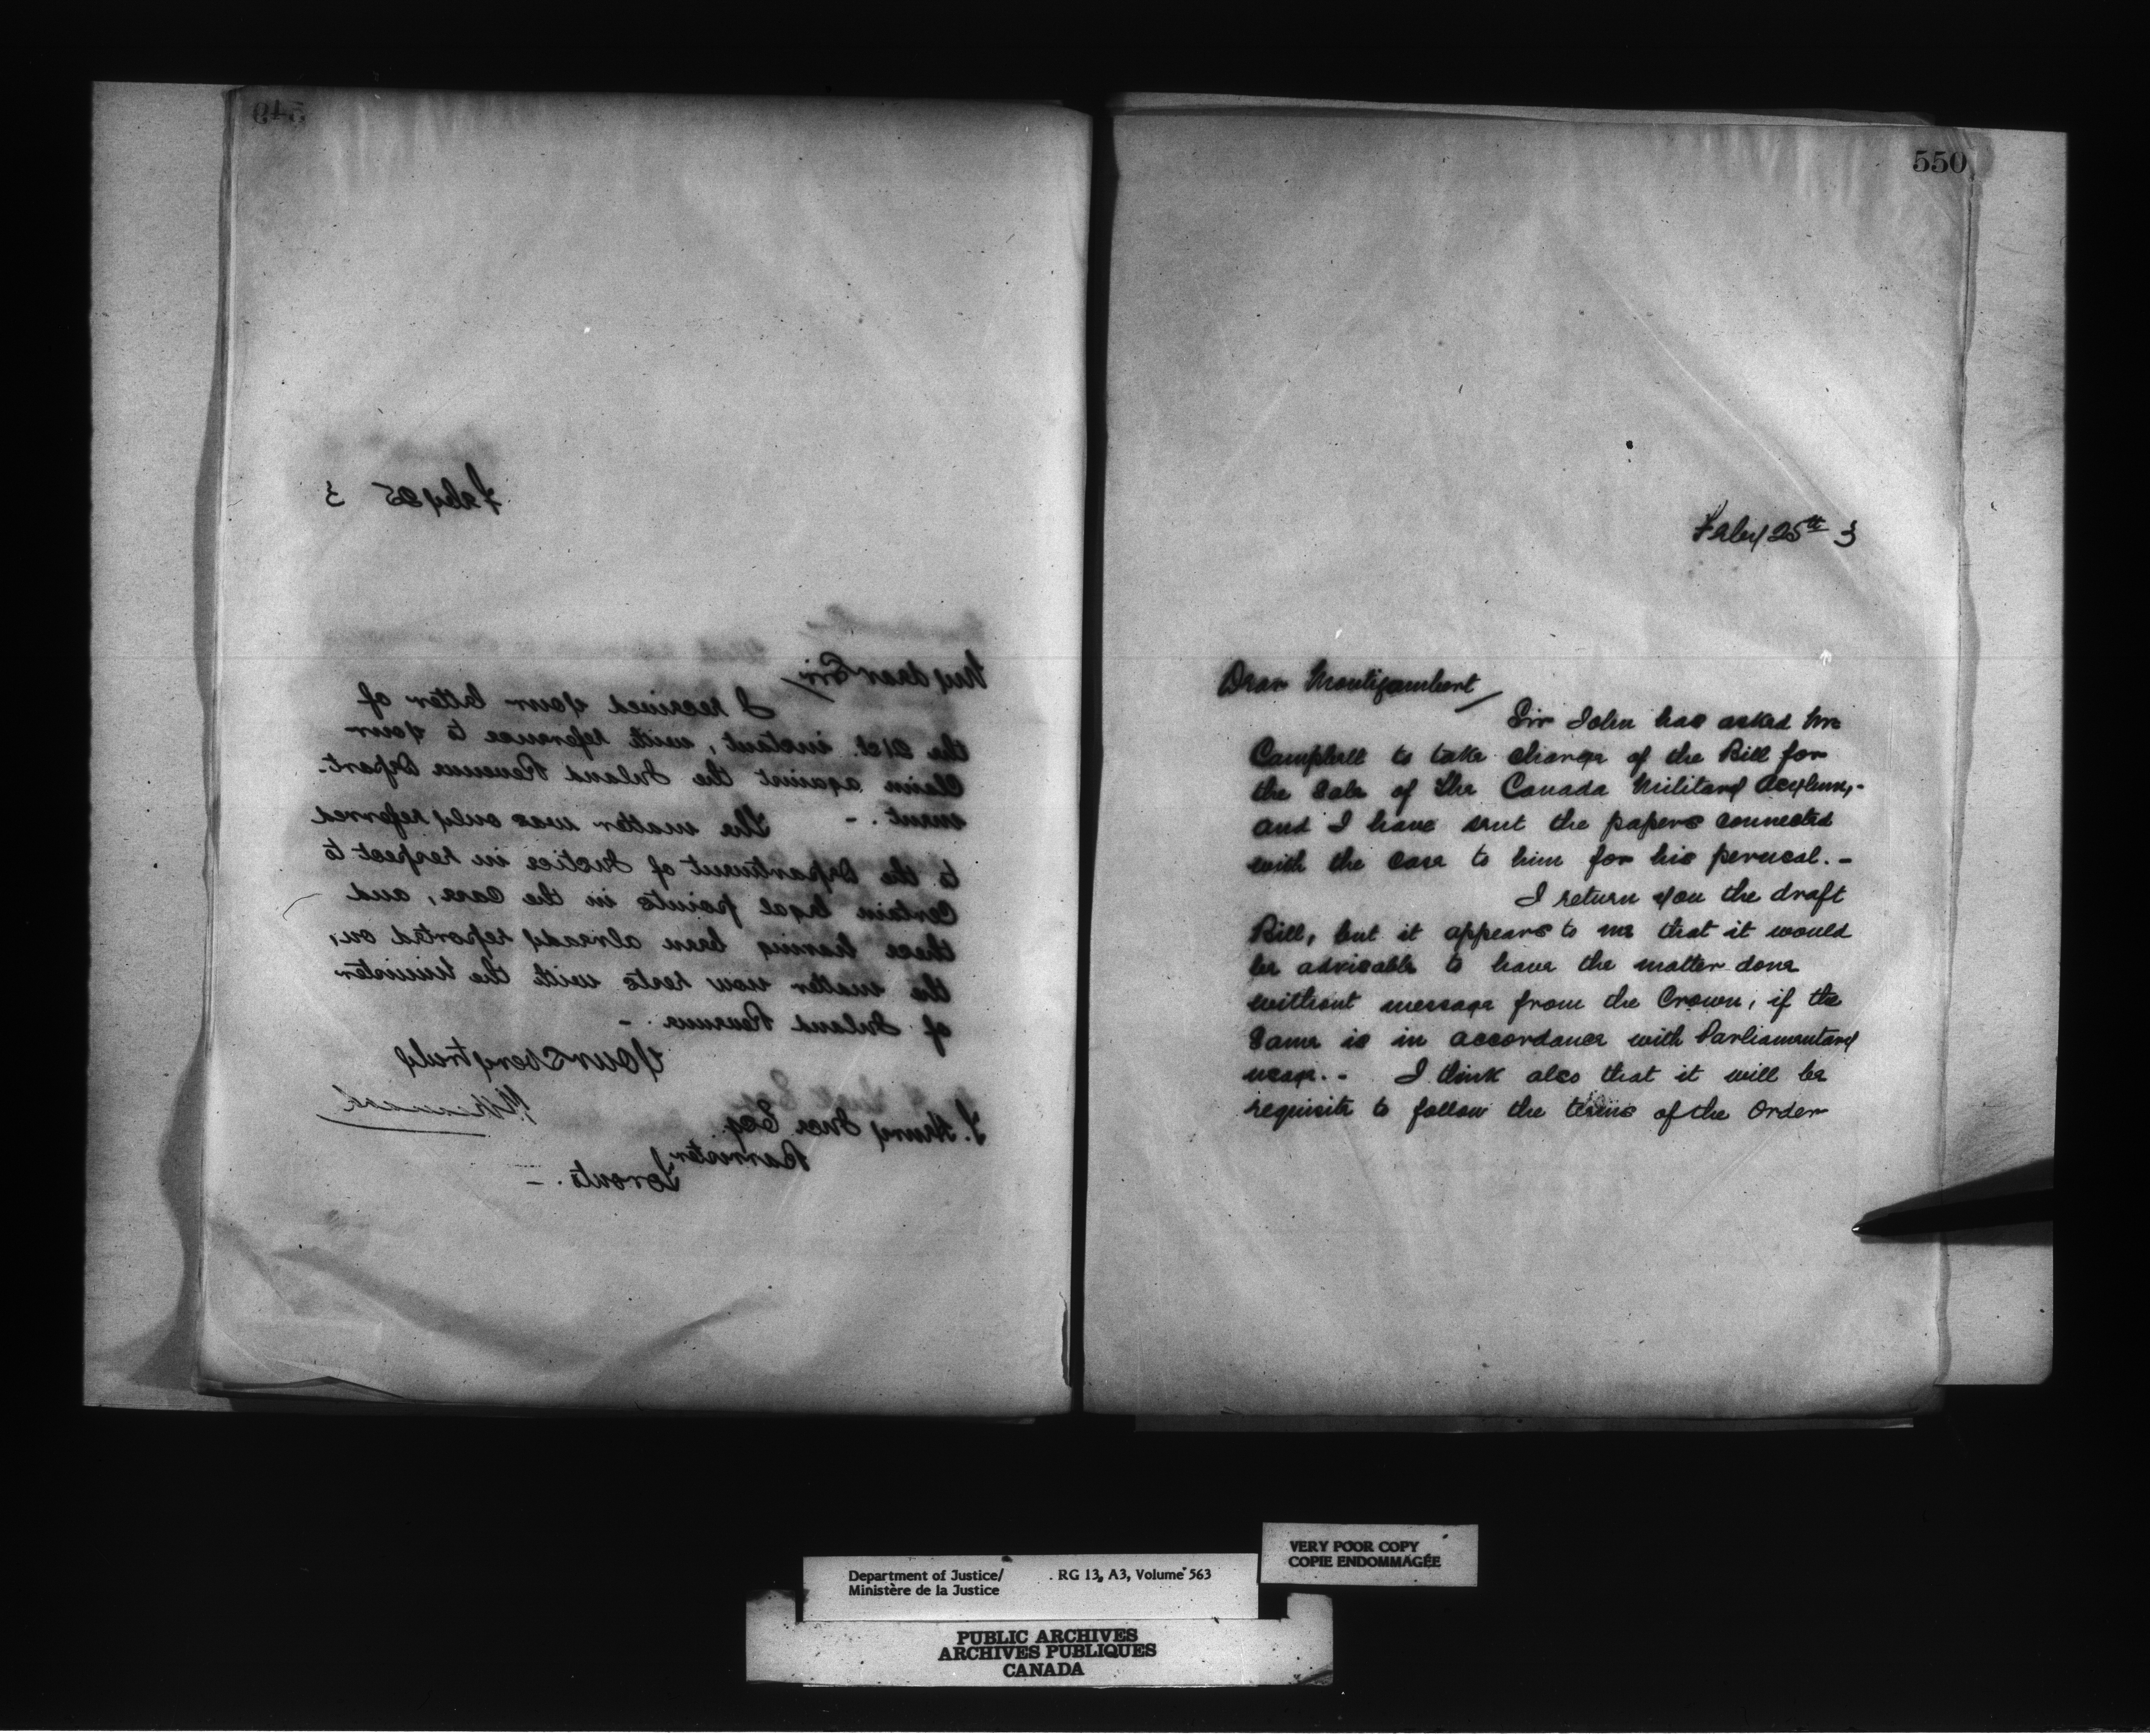 549
Feby 25 3
My dear Sir/
I received your letter of
the 21st. instant, with reference to your
Claim against the Inland Revenue Depart-
ment. - The matter was only referred
to the Department of Justice in respect to
Certain legal points in the Case, and
these having been already reported on,
the matter now rests with the Minister
of Inland Revenue. -
Yours very truly
Henry Ince Esq.
Barrister
Toronto. -
550
Feby 25th 3
Dear Montizambert/
Sir John has asked Mr
Campbell to take charge of the Bill for
the Sale of the Canada Military Asylum,-
and I have sent the papers connected
with the case to him for his perusal. -
I return you the draft
Bill, but it appears to me that it would
be advisable to have the matter done
without message from the Crown, if the
Same is in accordance with Parliamentary
usage. - I think also that it will be
requisite to follow the terms of the Order
VERY POOR COPY
COPIE ENDOMMAGÉE
Department of Justice/ RG 13, A3, Volume 563
Ministère de la Justice
PUBLIC ARCHIVES
ARCHIVES PUBLIQUES
CANADA